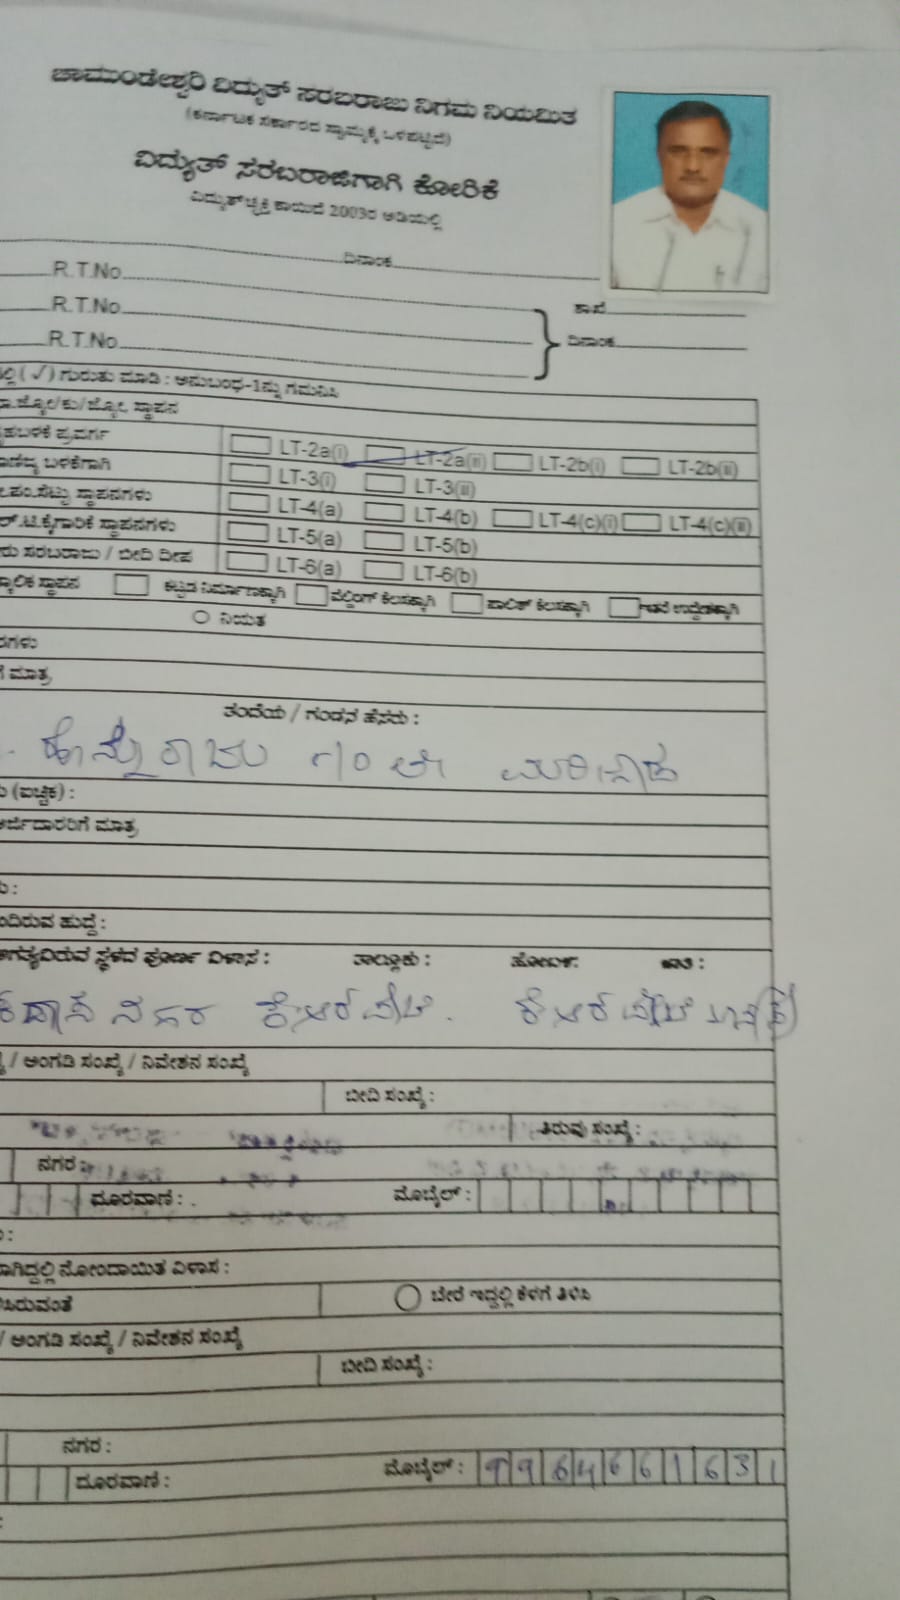 ಚಾಮುಂಡೇಶ್ವರಿ ವಿದ್ಯುತ್ ಸರಬರಾಜು ನಿಗಮ ನಿಯಮಿತ
(ಕರ್ನಾಟಕ ಸರ್ಕಾರದ ಸ್ವಾಮ್ಯಕ್ಕೆ ಒಳಪಟ್ಟಿದೆ)
ವಿದ್ಯುತ್ ಸರಬರಾಜಿಗಾಗಿ ಕೋರಿಕೆ
ವಿದ್ಯುತ್ಚ್ಛಕ್ತಿ ಕಾಯಿದೆ 2003ರ ಅಡಿಯಲ್ಲಿ
ದಿನಾಂಕ
R.T.No
R.T.No ಶಾಖೆ
R.T.No ದಿನಾಂಕ
ಲ್ಲಿ (✓) ಗುರುತು ಮಾಡಿ : ಅನುಬಂಧ-1ನ್ನು ಗಮನಿಸಿ
ಸ್ಥಾಪನ
ಹಬಳಕೆ ಪ್ರವರ್ಗ LT-2a(i) LT-2a(ii) LT-2b(i) LT-2b(ii)
ಬಳಕೆಗಾಗಿ LT-3(i) LT-3(ii)
ಪಂ.ಸೆಟ್ಟು ಸ್ಥಾಪನಗಳು LT-4(a) LT-4(b) LT-4(c)(i) LT-4(c)(ii)
ಲ್.ಟಿ.ಕೈಗಾರಿಕೆ ಸ್ಥಾಪನಗಳು LT-5(a) LT-5(b)
ರು ಸರಬರಾಜು / ಬೀದಿ ದೀಪ LT-6(a) LT-6(b)
ಕಾಲಿಕ ಸ್ಥಾಪನ ಕಟ್ಟಡ ನಿರ್ಮಾಣಕ್ಕಾಗಿ ವೆಲ್ಡಿಂಗ್ ಕೆಲಸಕ್ಕಾಗಿ ಪಾಲಿಶ್ ಕೆಲಸಕ್ಕಾಗಿ ಇತರೆ ಉದ್ದೇಶಕ್ಕಾಗಿ
ನಿಯತ
ರಗಳು
ಗೆ ಮಾತ್ರ
ತಂದೆಯ / ಗಂಡನ ಹೆಸರು :
ು (ಐಚ್ಛಿಕ) :
ಅರ್ಜಿದಾರರಿಗೆ ಮಾತ್ರ
ು :
ಂದಿರುವ ಹುದ್ದೆ :
ಅಗತ್ಯವಿರುವ ಸ್ಥಳದ ಪೂರ್ಣ ವಿಳಾಸ : ತಾಲ್ಲೂಕು : ಹೋಬಳಿ: ಜಾತಿ :
ನಗರ
/ ಅಂಗಡಿ ಸಂಖ್ಯೆ / ನಿವೇಶನ ಸಂಖ್ಯೆ
ಬೀದಿ ಸಂಖ್ಯೆ :
ತಿರುವು ಸಂಖ್ಯೆ :
ನಗರ :
ದೂರವಾಣಿ : ಮೊಬೈಲ್ :
ು :
ವಾಗಿದ್ದಲ್ಲಿ ನೋಂದಾಯಿತ ವಿಳಾಸ :
ಸಿರುವಂತೆ ಬೇರೆ ಇದ್ದಲ್ಲಿ ಕೆಳಗೆ ತಿಳಿಸಿ
/ ಅಂಗಡಿ ಸಂಖ್ಯೆ / ನಿವೇಶನ ಸಂಖ್ಯೆ
ಬೀದಿ ಸಂಖ್ಯೆ :
ನಗರ :
ದೂರವಾಣಿ : ಮೊಬೈಲ್ : 9964661631